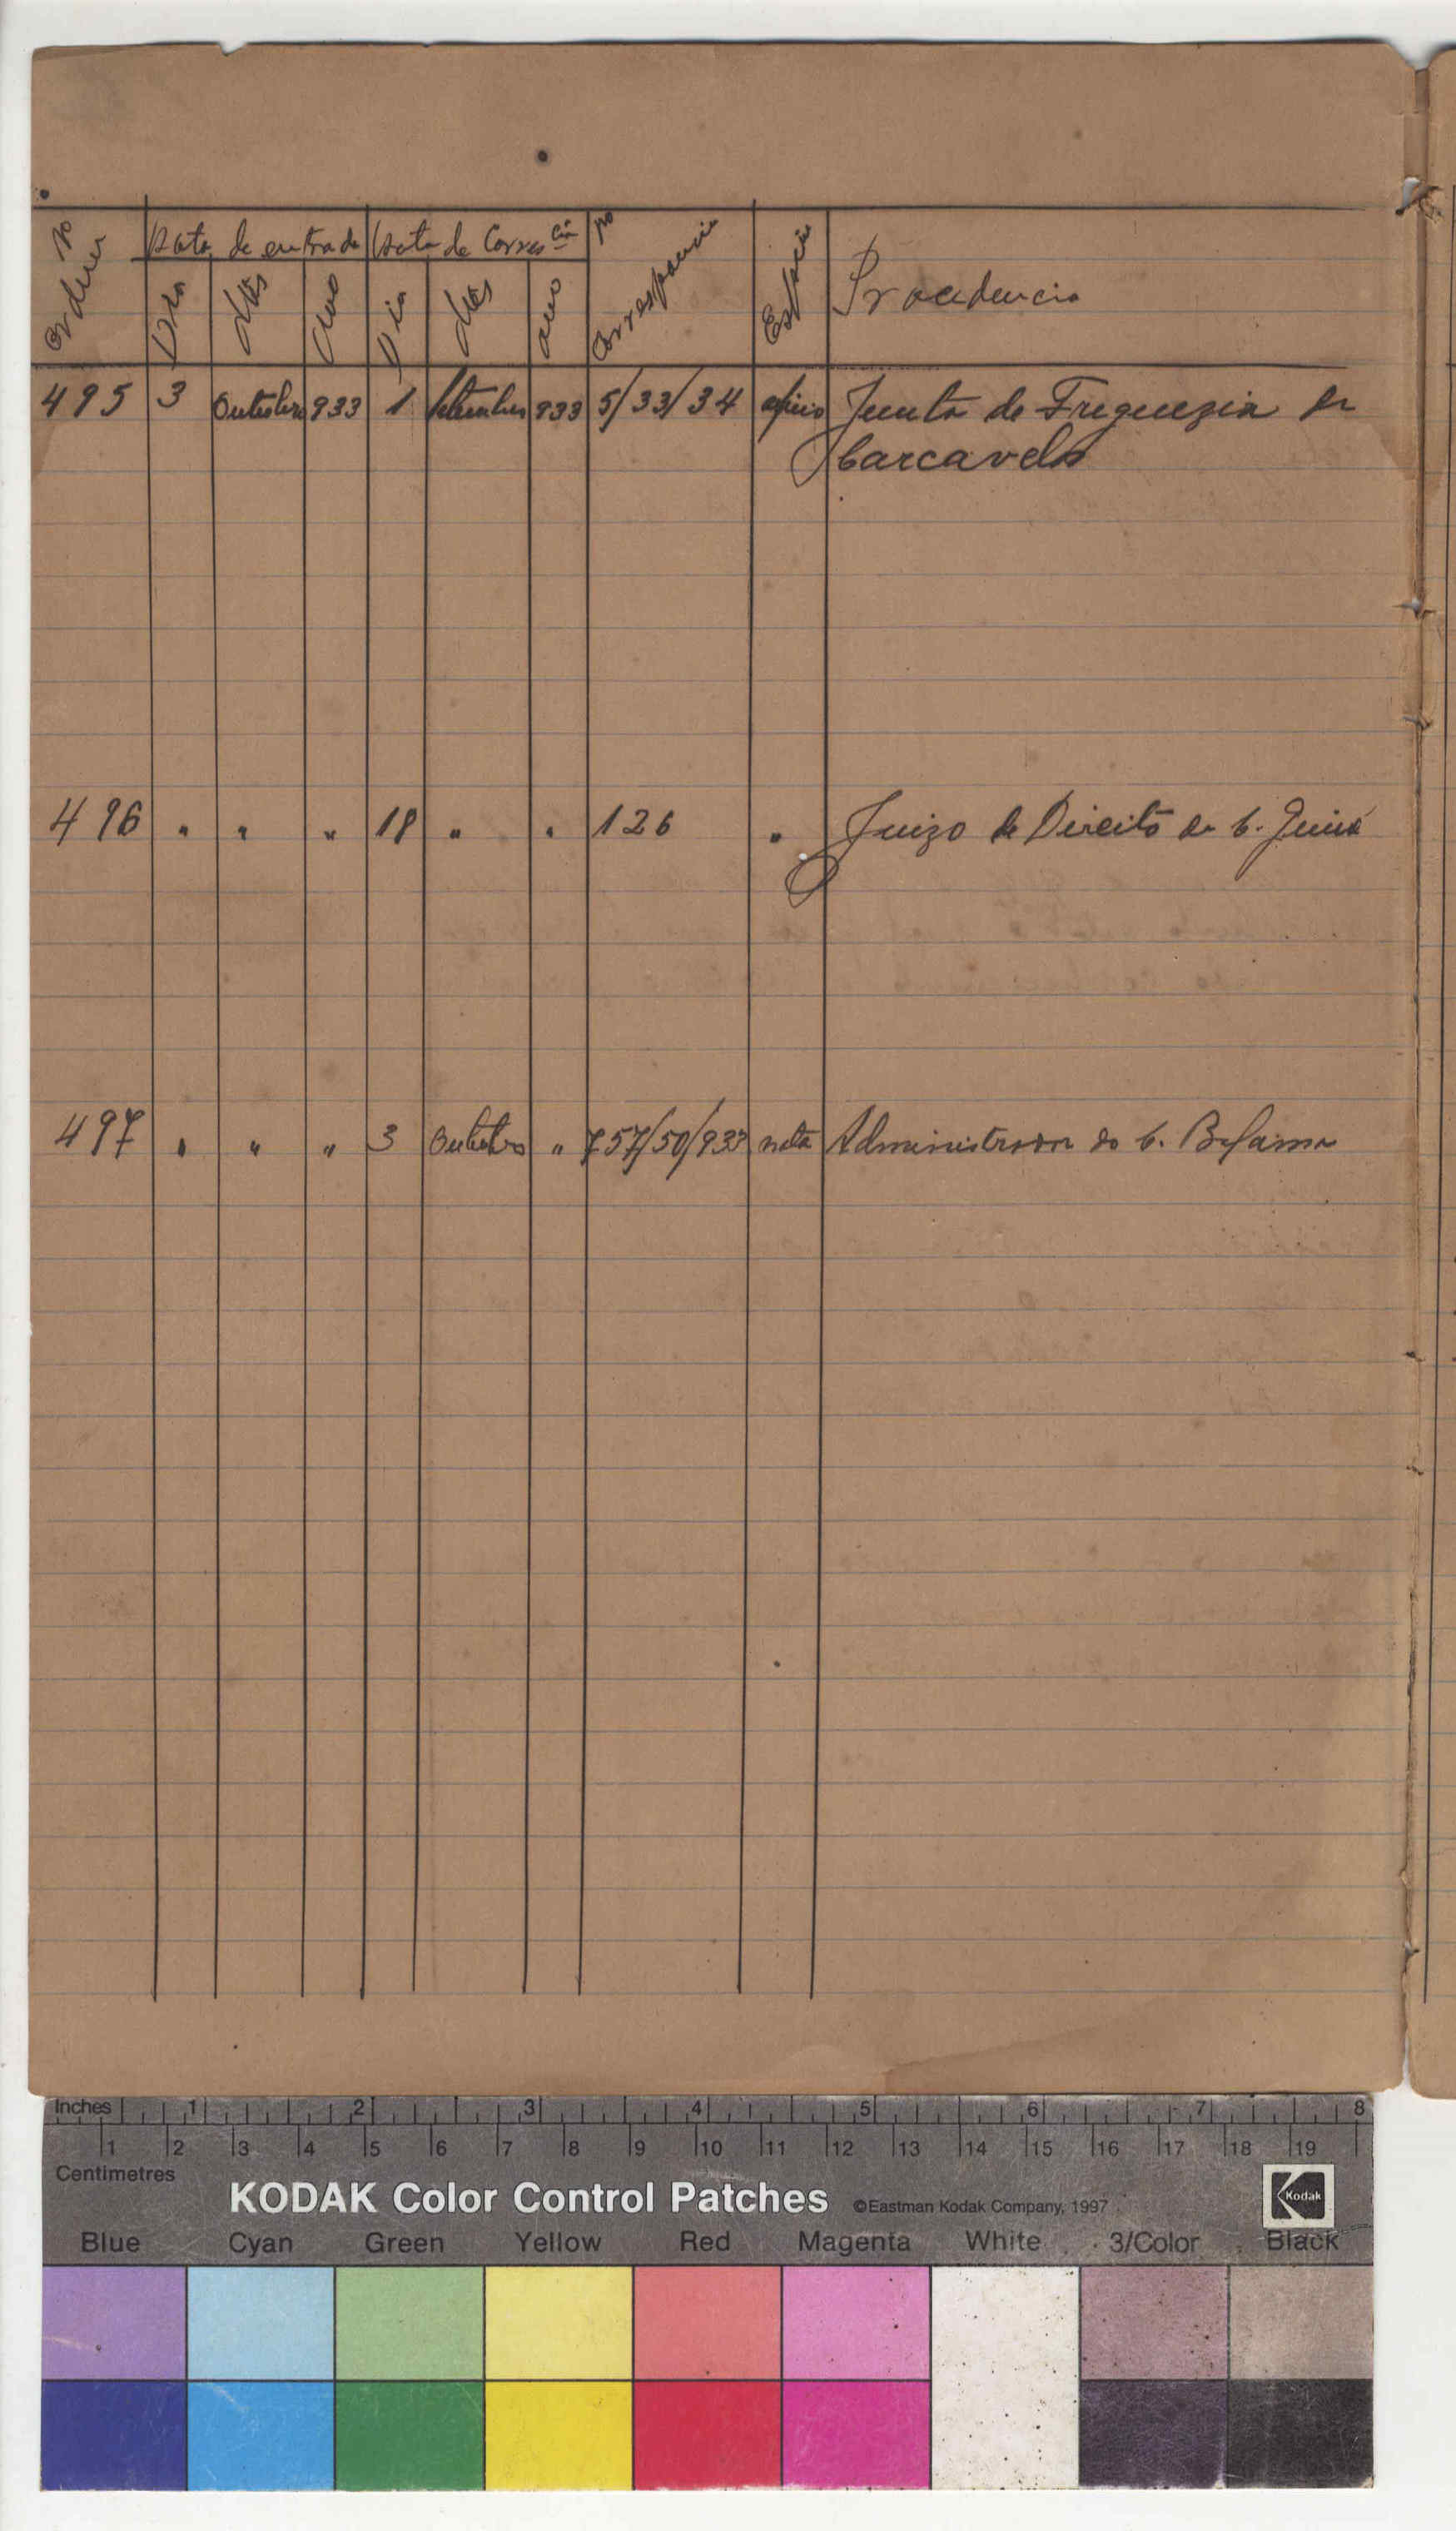 No
ordem
Data de entrada
Data de Corres cia
No
Correspancia
Especie
Procedencia
Dia
Mês
Ano
Dia
Mês
ano
495 3 Outubro 933 1 Setembro 933 5/33/34 oficio Junta de Freguezia de
Carcavelos
496 " " " 18 " " 126 " Juizo de Direito da C. Guiné
497 " " " 3 Outubro " 757/50/933 nota Administrador do C. Bolama
Inches 1 2 3 4 5 6 7 8
1 2 3 4 5 6 7 8 9 10 11 12 13 14 15 16 17 18 19
Centimetres
KODAK Color Control Patches ©Eastman Kodak Company, 1997 Kodak
Blue Cyan Green Yellow Red Magenta White 3/Color Black